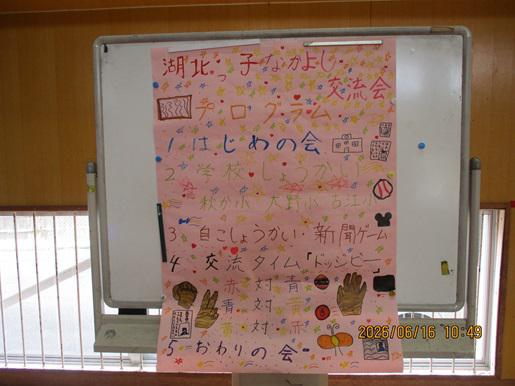 湖北っ子なかよし
交流会
プログラム
1 はじめの会
2 学校しょうかい
秋か小 大野小 古江小
3 自こしょうかい・新聞ゲーム
4 交流タイム「ドッジビー」
赤 対 青
青 対 黄
黄 対 赤
5 おわりの会
2026/06/16 10:49